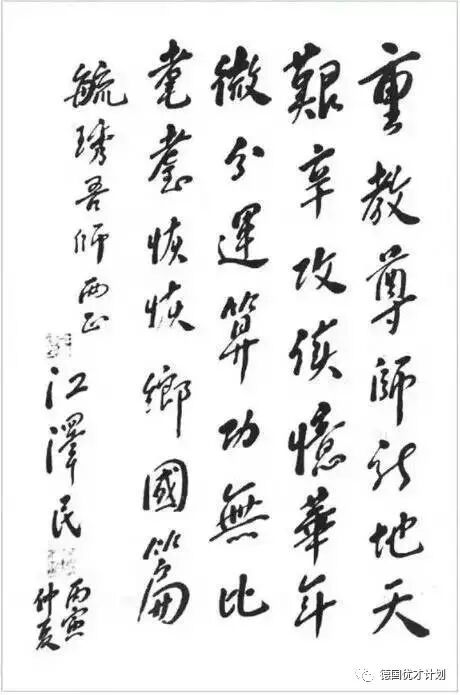 重教尊師新地天
艱辛攻读憶華年
微分運算功無比
耄耋恢恢鄉國篇
毓琇吾師两正
江澤民
丙寅
仲夏
德国优才计划